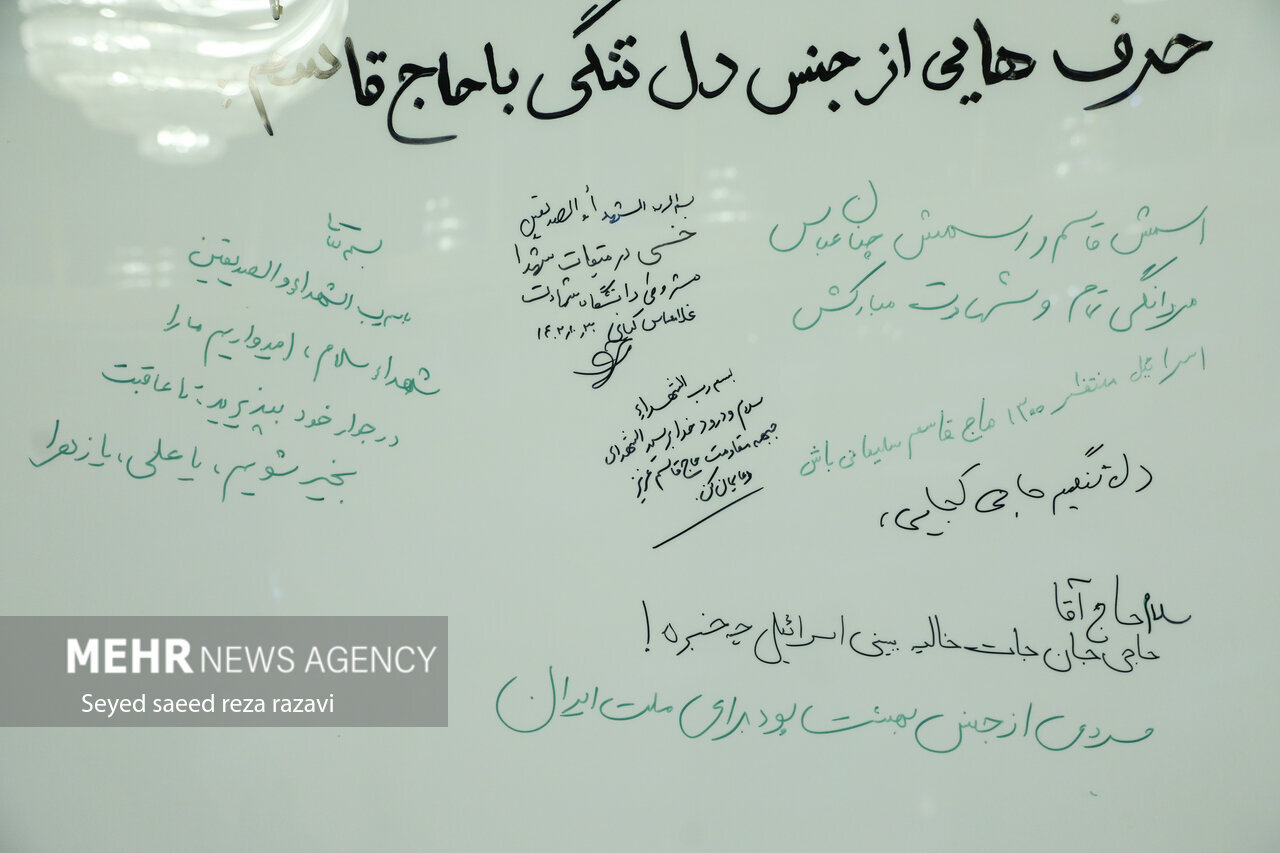 حرف هایی از جنس دل تنگی با حاج قاسم:
اسمش قاسم و رسمش چنان عباس
مردانگی مرام و شهادت مبارکش
اسرائیل منتظر ۱۳۰۰۰ حاج قاسم سلیمانی باش
دل تنگیم حاجی کجایی،
بسم رب الشهداء الصدیقین
شهدا
مشروطی دانشگاه شهادت
غلامعباس کیانی ۱۴۰۲،۱۰،۳۰
بسم رب الشهداء
سلام و درود خدا بر سید الشهدای
جبهه مقاومت حاج قاسم عزیز
دعایمان کن.
بسم رب الشهداء و الصدیقین
شهداء سلام، امیدواریم ما را
در جوار خود بپذیرید: تا عاقبت
بخیر شویم، یا علی، یا زهرا
سلام حاج آقا
حاجی جان جات خالیه ببینی اسرائیل چه خبره!
مردی از جنس بهشت بود برای ملت ایران
MEHR NEWS AGENCY
Seyed saeed reza razavi